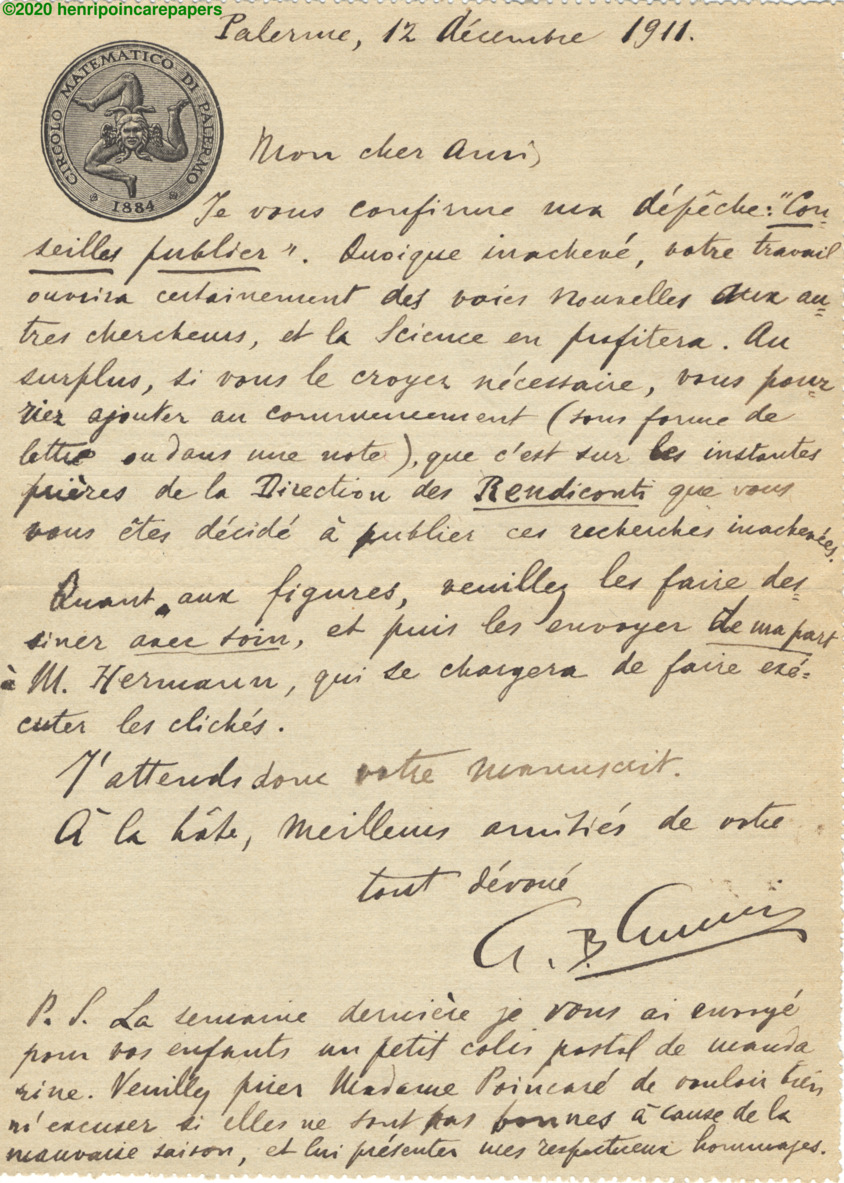 ©2020 henripoincarepapers
Palerme, 12 décembre 1911.
CIRCOLO MATEMATICO DI PALERMO
1884
Mon cher Ami,
Je vous confirme ma dépêche: "Con-
seilles publier". Quoique inachevé, votre travail
ouvrira certainement des voies nouvelles aux au-
tres chercheurs, et la Science en profitera. Au
surplus, si vous le croyez nécessaire, vous pour-
riez ajouter au commencement (sous forme de
lettre ou dans une note), que c'est sur les instantes
prières de la Direction des Rendiconti que vous
vous êtes décidé à publier ces recherches inachevées.
Quant aux figures, veuillez les faire des-
siner avec soin, et puis les envoyer de ma part
à M. Hermann, qui se chargera de faire exé-
cuter les clichés.
J'attends donc votre manuscrit.
À la hâte, meilleures amitiés de votre
tout dévoué
G. B. Guccia
P. S. La semaine dernière je vous ai envoyé
pour vos enfants un petit colis postal de manda
rine. Veuillez prier Madame Poincaré de vouloir bien
m'excuser si elles ne sont pas bonnes à cause de la
mauvaise saison, et lui présenter mes respectueux hommages.